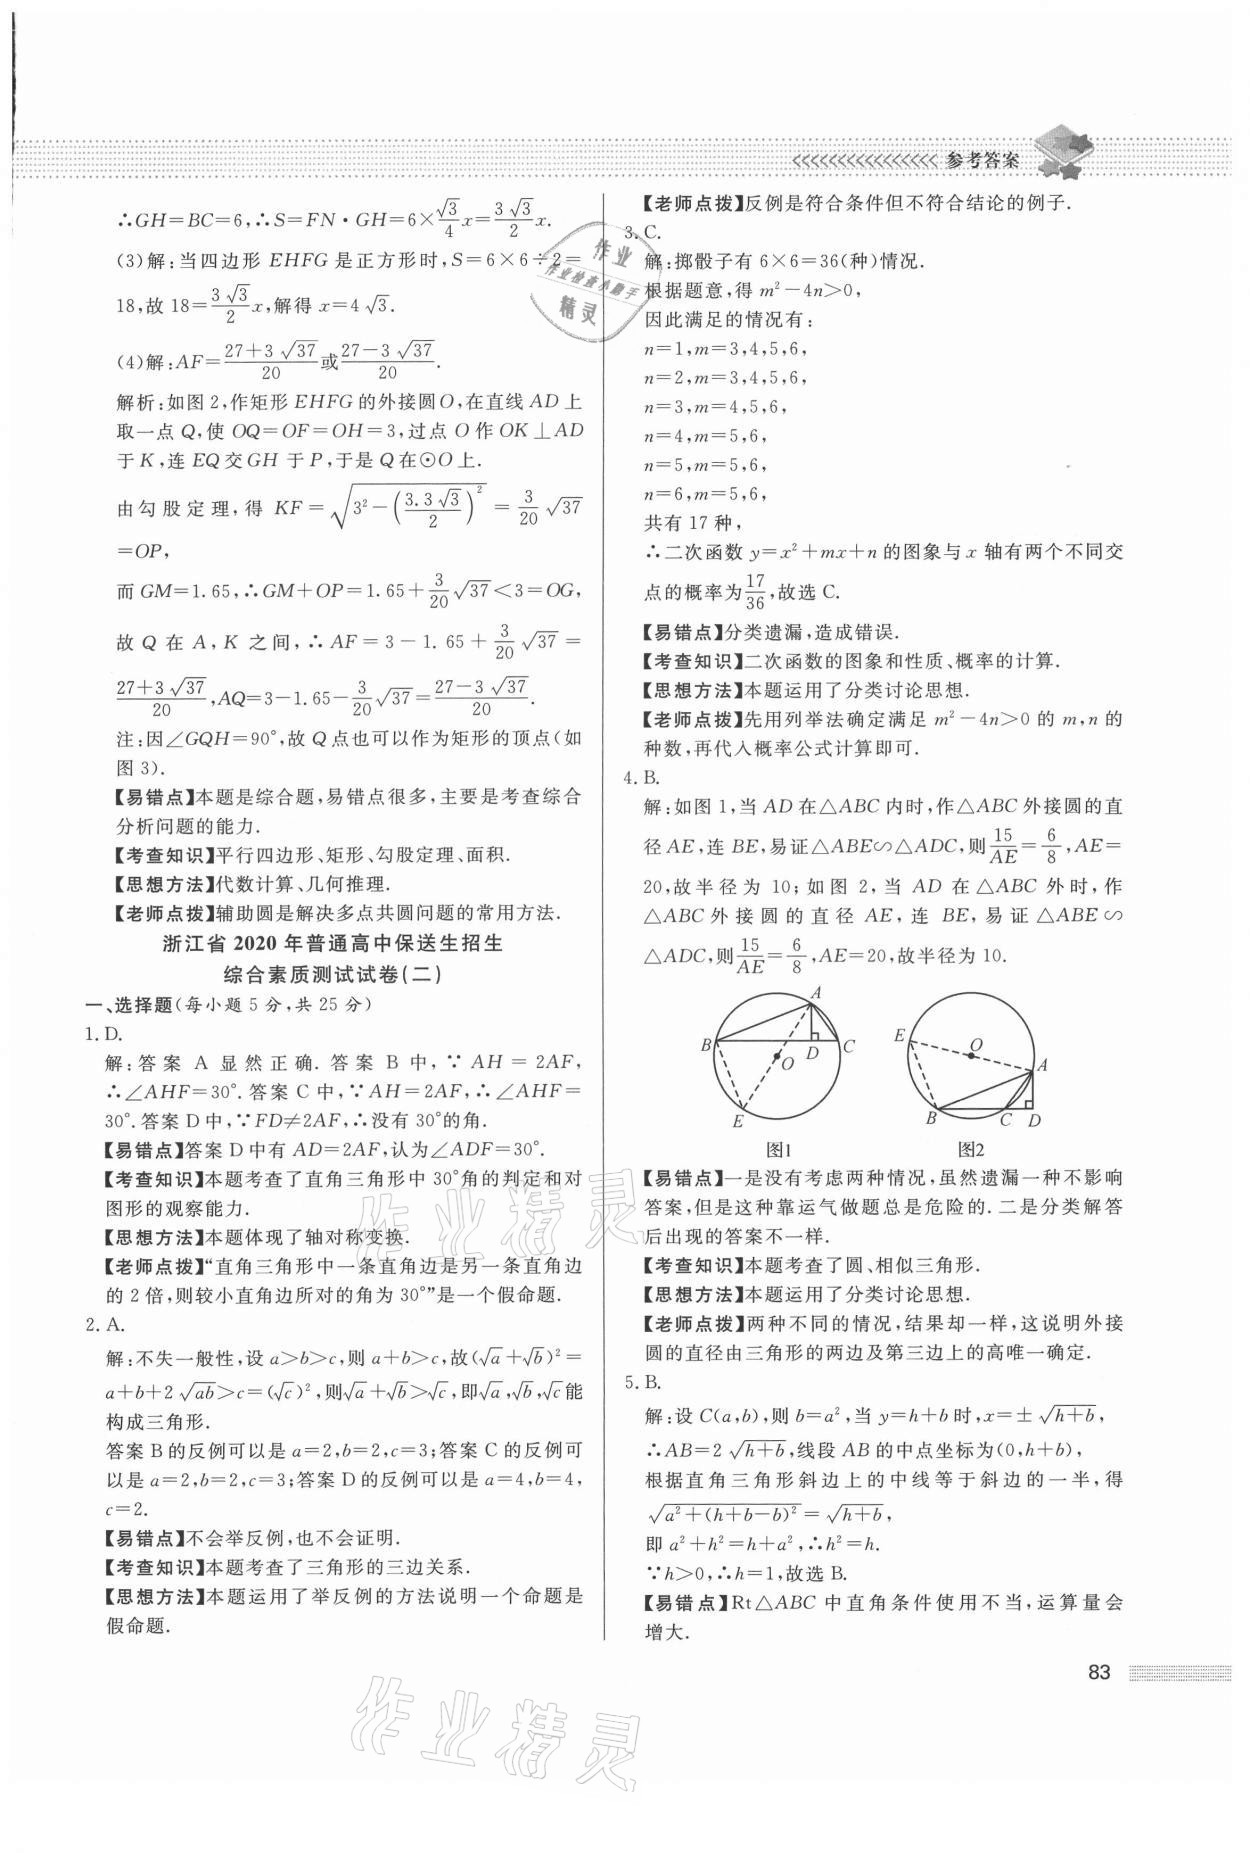 参考答案
∴GH=BC=6,∴S=FN·GH=6×√3/4 x=3√3/2 x.
(3)解:当四边形 EHFG 是正方形时,S=6×6÷2=
18,故 18=3√3/2 x,解得 x=4√3.
(4)解:AF=(27+3√37)/20或(27-3√37)/20.
解析:如图 2,作矩形 EHFG 的外接圆O,在直线 AD 上
取一点 Q,使 OQ=OF=OH=3,过点 O 作 OK⊥AD
于 K,连 EQ交 GH 于 P,于是 Q 在⊙O 上.
由勾股定理,得 KF=√(3²-(3.3√3/2)²)=3/20 √37
=OP,
而 GM=1.65,∴GM+OP=1.65+3/20 √37<3=OG,
故 Q 在 A,K 之间,∴AF=3-1.65+3/20 √37=
(27+3√37)/20,AQ=3-1.65-3/20 √37=(27-3√37)/20.
注:因∠GQH=90°,故 Q 点也可以作为矩形的顶点(如
图 3).
【易错点】本题是综合题,易错点很多,主要是考查综合
分析问题的能力.
【考查知识】平行四边形、矩形、勾股定理、面积.
【思想方法】代数计算、几何推理.
【老师点拨】辅助圆是解决多点共圆问题的常用方法.
浙江省 2020 年普通高中保送生招生
综合素质测试试卷(二)
一、选择题(每小题 5 分,共 25 分)
1. D.
解:答案 A 显然正确. 答案 B 中,∵AH=2AF,
∴∠AHF=30°. 答案 C 中,∵AH=2AF,∴∠AHF=
30°. 答案 D 中,∵FD≠2AF,∴没有 30°的角.
【易错点】答案 D 中有 AD=2AF,认为∠ADF=30°.
【考查知识】本题考查了直角三角形中 30°角的判定和对
图形的观察能力.
【思想方法】本题体现了轴对称变换.
【老师点拨】“直角三角形中一条直角边是另一条直角边
的 2 倍,则较小直角边所对的角为 30°”是一个假命题.
2. A.
解:不失一般性,设 a>b>c,则 a+b>c,故(√a+√b)²=
a+b+2√ab>c=(√c)²,则√a+√b>√c,即√a,√b,√c能
构成三角形.
答案 B 的反例可以是 a=2,b=2,c=3;答案 C 的反例可
以是 a=2,b=2,c=3;答案 D 的反例可以是 a=4,b=4,
c=2.
【易错点】不会举反例,也不会证明.
【考查知识】本题考查了三角形的三边关系.
【思想方法】本题运用了举反例的方法说明一个命题是
假命题.
【老师点拨】反例是符合条件但不符合结论的例子.
3. C.
解:掷骰子有 6×6=36(种)情况.
根据题意,得 m²-4n>0,
因此满足的情况有:
n=1,m=3,4,5,6,
n=2,m=3,4,5,6,
n=3,m=4,5,6,
n=4,m=5,6,
n=5,m=5,6,
n=6,m=5,6,
共有 17 种,
∴二次函数 y=x²+mx+n 的图象与 x 轴有两个不同交
点的概率为17/36,故选 C.
【易错点】分类遗漏,造成错误.
【考查知识】二次函数的图象和性质、概率的计算.
【思想方法】本题运用了分类讨论思想.
【老师点拨】先用列举法确定满足 m²-4n>0 的 m,n 的
种数,再代入概率公式计算即可.
4. B.
解:如图 1,当 AD 在△ABC 内时,作△ABC 外接圆的直
径 AE,连 BE,易证△ABE∽△ADC,则15/AE=6/8,AE=
20,故半径为 10;如图 2,当 AD 在△ABC 外时,作
△ABC 外接圆的直径 AE,连 BE,易证△ABE∽
△ADC,则15/AE=6/8,AE=20,故半径为 10.
A
B
D
C
O
E
图1
E
O
A
B
C
D
图2
【易错点】一是没有考虑两种情况,虽然遗漏一种不影响
答案,但是这种靠运气做题总是危险的. 二是分类解答
后出现的答案不一样.
【考查知识】本题考查了圆、相似三角形.
【思想方法】本题运用了分类讨论思想.
【老师点拨】两种不同的情况,结果却一样,这说明外接
圆的直径由三角形的两边及第三边上的高唯一确定.
5. B.
解:设 C(a,b),则 b=a²,当 y=h+b 时,x=±√(h+b),
∴AB=2√(h+b),线段 AB 的中点坐标为(0,h+b),
根据直角三角形斜边上的中线等于斜边的一半,得
√(a²+(h+b-b)²)=√(h+b),
即 a²+h²=h+a²,∴h²=h.
∵h>0,∴h=1,故选 B.
【易错点】Rt△ABC 中直角条件使用不当,运算量会
增大.
83
作业
作业检查小助手
精灵
作业精灵
作业精灵